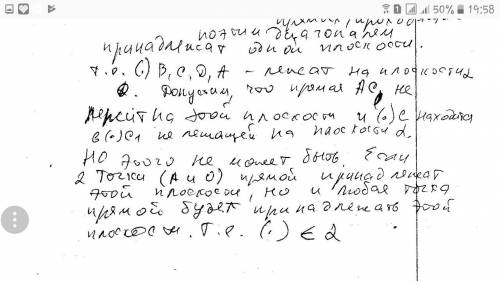 50% 19:58
прямых, проход
поэтим диагоналем
принадлежат одной плоскости.
т.е. (·) B, C, D, A – лежат на плоскости α
Допустим, что прямая AC, не
лежит на этой плоскости и (·) C находится
в (·) C1 не лежащей на плоскости α.
НО этого не может быть. Если
2 точки (A и O) прямой принадлежат
этой плоскости, но и любая точка
прямой будет принадлежать этой
плоскости. Т.е. (·) ∈ α